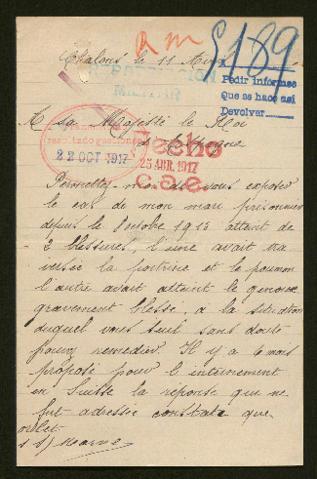 Chalons le 11
am
5189
INTERVENCION
MILITAR
Pedir informes
Que se hace así
Devolver
A sa Majesté le Roi
d'Espagne
22 OCT 1917
Hecho
25 ABR. 1917
C.a.e.
Permettez-moi de vous exposer
le cas de mon mari prisonnier
depuis le 8 octobre 1915 atteint de
2 blessures, l'une avait tra
versée la poitrine et le poumon
l'autre avait atteint le genoux
gravement blessé, a la situation
duquel vous seul sans doute
pouvez remedier. Il y a 6 mois
proposé pour l'internement
en Suisse la réponse qui me
fut adressée constata que
Marne